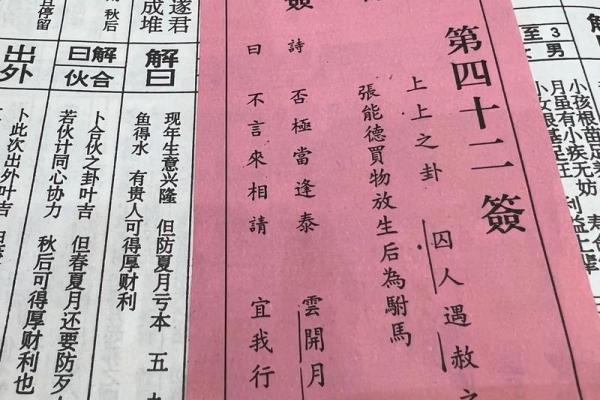 3男
至
小孩根苗足养
月虽有小疾无妨
小女根基足旺 利益上辈
第四十二簽
上上之卦 囚人遇赦之
張能德買物放生后為駙馬
簽
詩 否極當逢泰 雲開月
曰 不言來相請 宜我行
遂君
成堆
解曰
现年生意兴隆 但防夏月亏本 五
鱼得水 有贵人可得厚财利
秋后
合伙
解曰
卜合伙之卦叶吉 但春夏月还要防歹
若伙计同心协力 秋后可得厚财利也
且停留
出外
卜此次出外叶吉